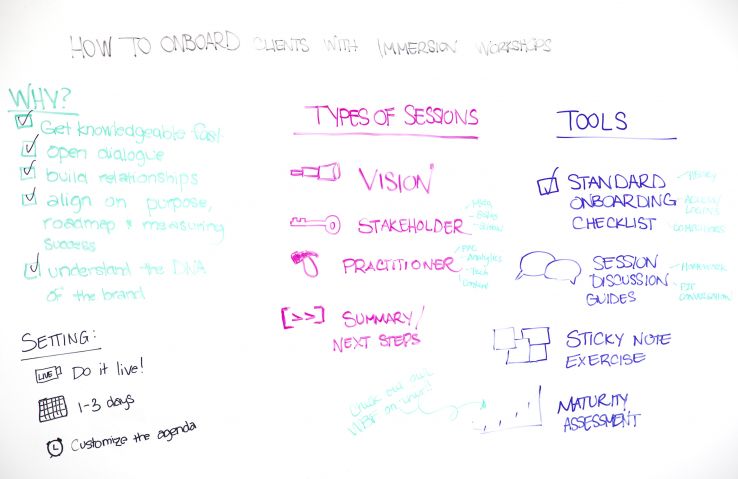 HOW TO ONBOARD CLIENTS WITH IMMERSION WORKSHOPS
WHY?
Get knowledgeable fast
open dialogue
build relationships
align on purpose,
roadmap & measuring
success
understand the DNA
of the brand
SETTING:
LIVE Do it live!
1-3 days
Customize the agenda
TYPES OF SESSIONS
VISION
STAKEHOLDER
- Sales
PRACTITIONER
Analytics
- Tech
Content
[>>] SUMMARY/
NEXT STEPS
TOOLS
STANDARD
ONBOARDING
CHECKLIST
ACCESS/
LOGINS
COMPETITORS
SESSION
DISCUSSION
GUIDES
- HOMEWORK
CONVERSATION
STICKY NOTE
EXERCISE
MATURITY
ASSESSMENT
check out our